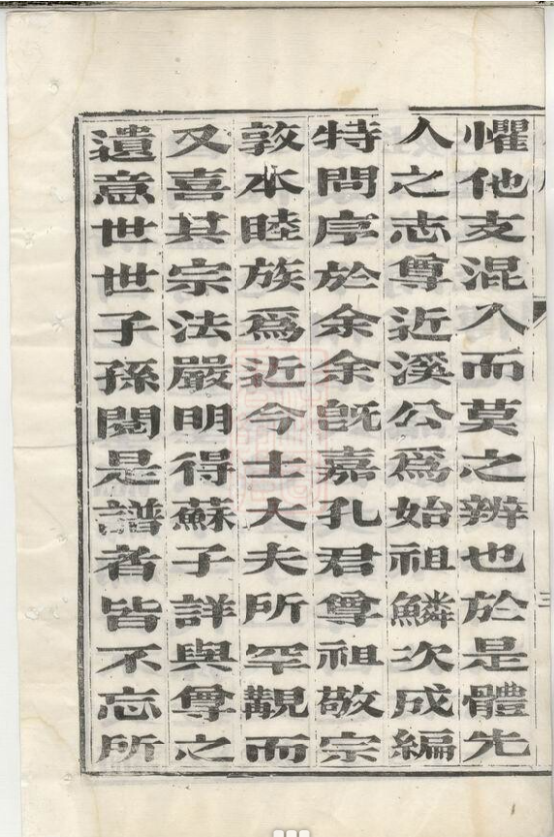 懼他支混入而莫之辨也於是體先
人之志尊近溪公為始祖鱗次成編
特問序於余余旣嘉孔君尊祖敬宗
敦本睦族爲近今士大夫所罕覯而
又喜其宗法嚴明得蘇子詳與尊之
遺意世世子孫閱是譜者皆不忘所
三